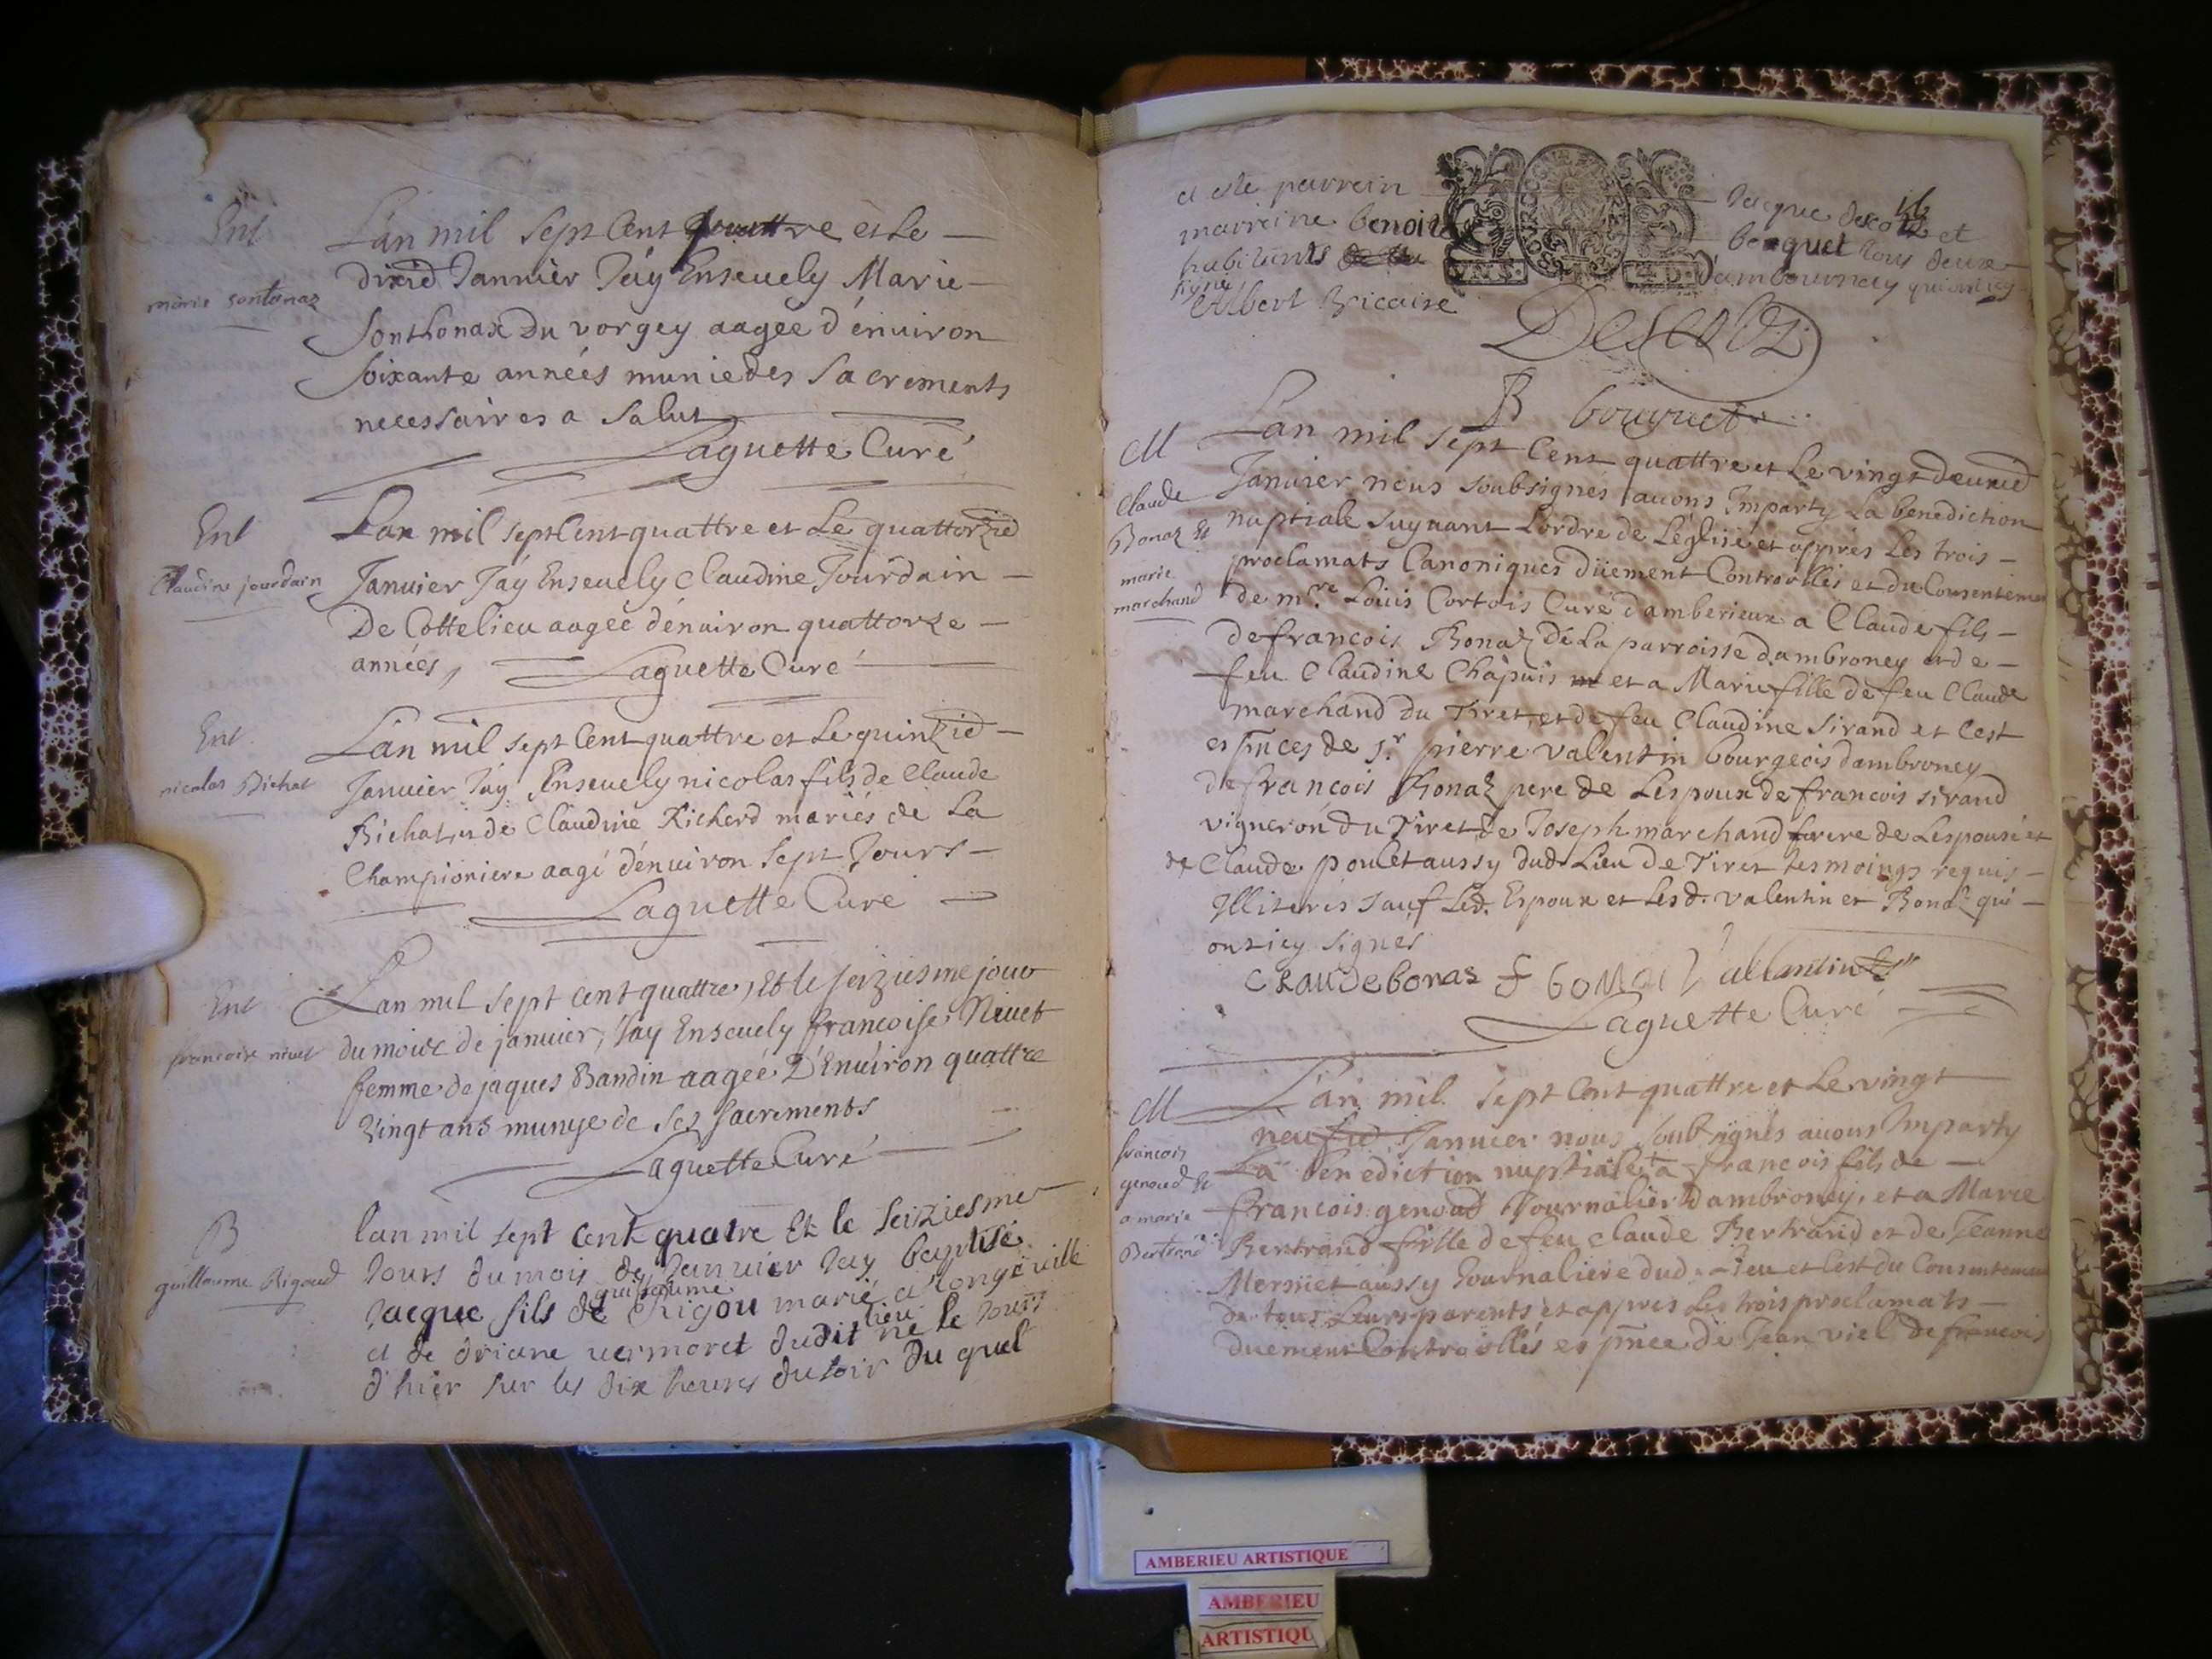 Ent
marie sontonaz
Lan mil Sept Cent quattre et Le
dixie Januier J'ay Enseuely Marie
Sonthonax Du vorgey aagee d'enuiron
Soixante années munie des Sacrements
necessaires a Salut
Laguette Curé
Ent
Claudine jourdain
Lan mil sept Cent quattre et Le quattorzie
Januier J'ay Enseuely Claudine Jourdain
De Cottelieu aagée dénuiron quattorze
années,
Laguette Curé
Ent
nicolas Bichat
Lan mil sept Cent quattre et Le quinzie
Januier J'ay Enseuely nicolas fils de Claude
Bichat, et de Claudine Richerd mariés de La
Championiere aagé dénuiron Sept Jours
Laguette Curé
Ent
francoise nivet
Lan mil sept cent quattre, Et le seiziesme jour
du mois de januier, J'ay Enseuely francoise Nivet
femme de jaques Bandin aagée D'Enuiron quattre
vingt ans munye de ses sacrements
Laguette Curé
B
guillaume Rigaud
lan mil sept cent quatre Et le seiziesme
Jours du mois de Januier Jay baptisé
guillaume
Jacque fils de Rigou marié a longeville
et de driane uermoret dudit lieu né le Jours
d'hier sur les dix heures du soir du quel
16
a este parrein Jacque descotz et
marreine benoite bouquet tous deux
habitants d'ambournay qui ont icy
signé
Albert Vicaire
Descotz
B bouquet
M
Claude
Bonaz Et
marie
marchand
Lan mil Sept Cent quattre et Le vingt deuxie
Januier nous soubsignes auons Imparty La benediction
nuptiale Suyuant Lordre de L'église et appres Les trois
proclamats Canoniques düement Controllés et du Consentement
de mre Loüis Cortois Curé d'amberieux a Claude fils
de francois Bonaz de La parroisse dambroney et de
feu Claudine Chapuis et a Marie fille de feu Claude
marchand du Tiret, et de feu Claudine Sirand et Cest
es pnces de Sr pierre valentin bourgeois d'ambroney
de francois Bonaz pere de Lespoux de francois sirand
vigneron du Tiret de Joseph marchand frere de Lespouse et
de Claude poulet aussy dud. Lieu de Tiret tesmoings requis
Illiterés Sauf Led. Espoux et Lesd. valentin et Bonaz qui
ont icy signes
CLaude bonas f bonaz Vallantin
Laguette Curé
M
francois
genoud Et
a marie
Bertrand
L'an mil Sept Cent quattre et Le vingt
neufie Januier nous Soubsignés auons Imparty
La benediction nuptiale a francois fils de
francois genoud Journalier d'ambroney, et a Marie
Bertrand fille de feu Claude Bertrand et de Jeanne
Mersiet aussy Journaliere dud. Lieu et Cest du Consentement
de tous Leurs parents et appres Les trois proclamats
duement Controllés es pnce de Jean viel de francois
AMBERIEU ARTISTIQUE
AMBERIEU
ARTISTIQU